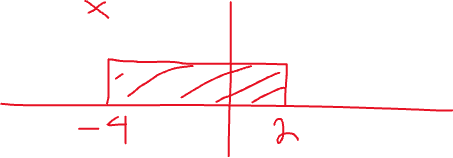 x
-4 2